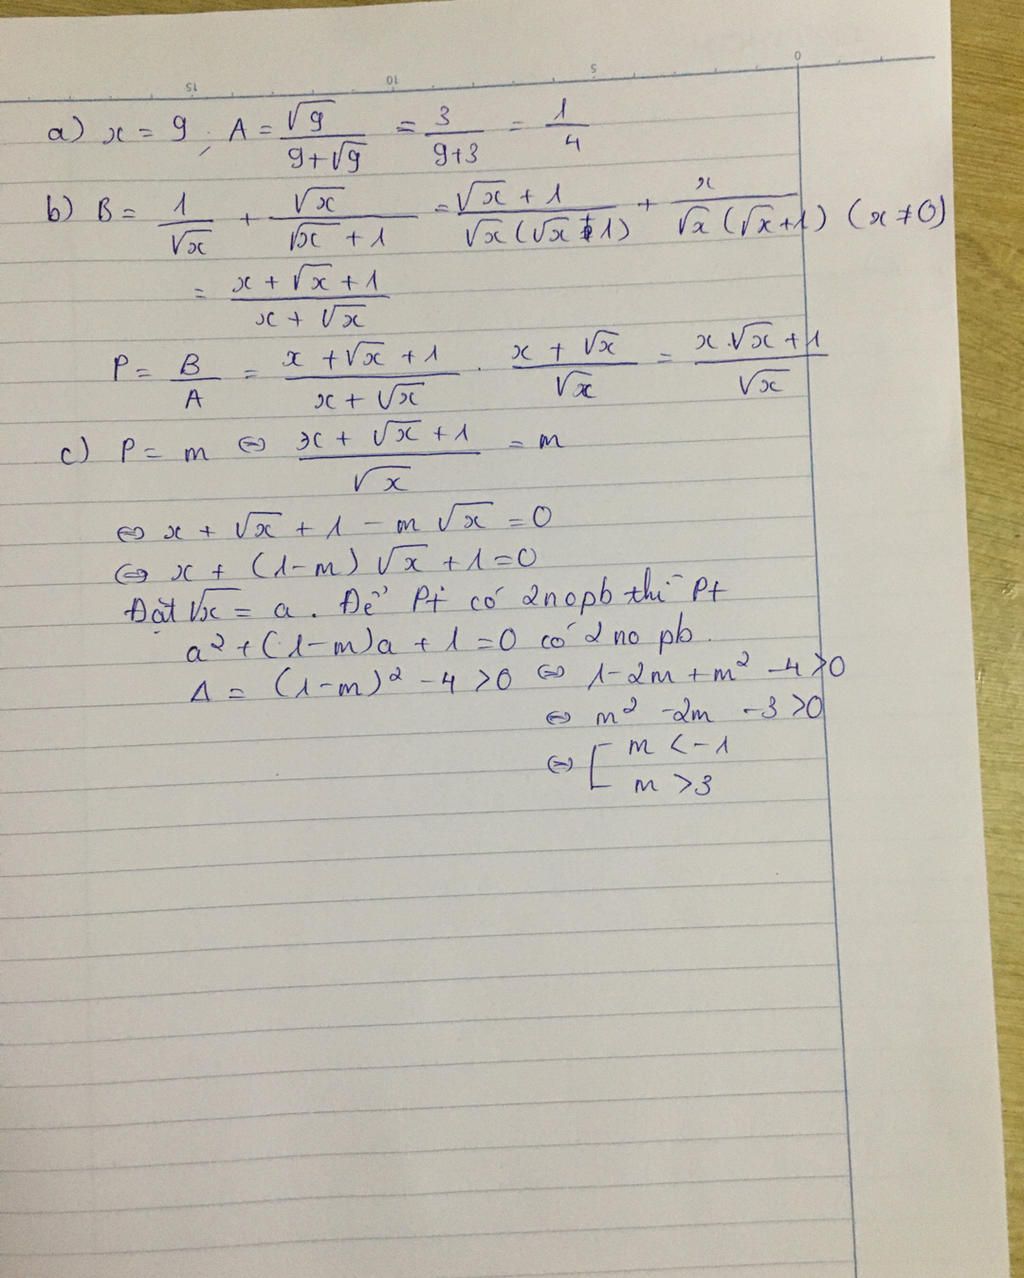 0 5 10 15
a) x = 9, A = √9/(9+√9) = 3/(9+3) = 1/4
b) B = 1/√x + √x/(√x + 1) = (√x + 1)/(√x(√x + 1)) + x/(√x(√x+1)) (x ≠ 0)
= (x + √x + 1)/(x + √x)
P = B/A = (x + √x + 1)/(x + √x) . (x + √x)/√x = (x . √x + 1)/√x
c) P = m ⇔ (x + √x + 1)/√x = m
⇔ x + √x + 1 - m √x = 0
⇔ x + (1-m) √x + 1 = 0
Đặt √x = a. Để Pt có 2 no pb thì Pt
a² + (1-m)a + 1 = 0 có 2 no pb.
Δ = (1-m)² - 4 > 0 ⇔ 1-2m + m² - 4 > 0
⇔ m² - 2m - 3 > 0
⇔ [ m < -1
m > 3